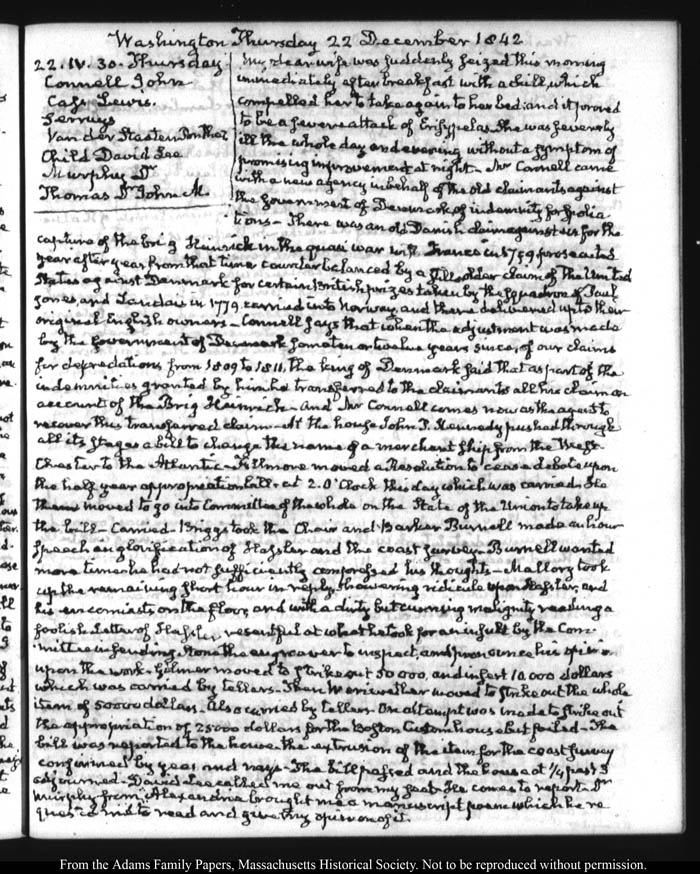 Washington Thursday 22 December 1842
22. IV. 30. Thursday
Connell John
Cass Lewis.
Ferris
Van der
Child David Lee
Murphy Dr
Thomas Dr John M.
My dear wife was suddenly seized this morning
immediately after breakfast with a chill, which
compelled her to take again to her bed; and it proved
to be a severe attack of Erisypelas. She was severely
ill the whole day and evening without a symptom of
promising improvement at night. Mr Connell came
with a new agency in behalf of the old claimants against
the Government of Denmark of indemnity for spolia-
tions. There was an old Danish claim against us for the
capture of the brig Heinrich in the quasi war with France in 1799 prosecuted
year after year from that time counterbalanced by a still older claim of the United
States against Denmark for certain British prizes taken by the Squadron of Paul
Jones, and Landais in 1779 carried into Norway, and there delivered up to their
original English owners. Connell says that when the adjustment was made
by the Government of Denmark some ten or twelve years since, of our claims
for depredations from 1809 to 1811, the king of Denmark said that as part of the
indemnities granted by him he transferred to the claimants all his claim on
account of the Brig Heinrich. And Mr Connell comes now as the agent to
recover this transferred claim. At the house John P. Kennedy pushed through
all its stages a bill to change the name of a merchant ship from the West-
Chester to the Atlantic. Fillmore moved a Resolution to cease debate upon
the half year appropriation bill at 2. O'Clock this day which was carried. He
then moved to go into Committee of the whole on the State of the Union to take up
the bill. Carried. Briggs took the Chair and Barker Burnell made an hour
speech in glorification of Hassler and the coast survey. Burnell wanted
more time he had not sufficiently compressed his thoughts. Mallory took
up the remaining short hour in reply, showering ridicule upon Hassler, and
his encomiasts on the floor, and with a dirty but cunning malignity reading a
foolish Letter of Hassler resentful at what he took for an insult by the Com-
mittee in sending Stone the engraver to inspect, and pronounce his opinion
upon the work. Gilmer moved to strike out 50 000, and insert 10.000 dollars
which was carried by tellers. Then Meriwether moved to strike out the whole
item of 50000 dollars. Also carried by tellers. An attempt was made to strike out
the appropriation of 25000 dollars for the Boston Custom house but failed. The
bill was reported to the house. the extrusion of the item for the coast survey
confirmed by yeas and nays. The bill passed and the house at 1/4 past 3
adjourned. David Lee called me out from my seat. He comes to report. Dr
Murphy from Alexandria brought me a manuscript poem which he re-
quested me to read and give my opinion of it.
From the Adams Family Papers, Massachusetts Historical Society. Not to be reproduced without permission.